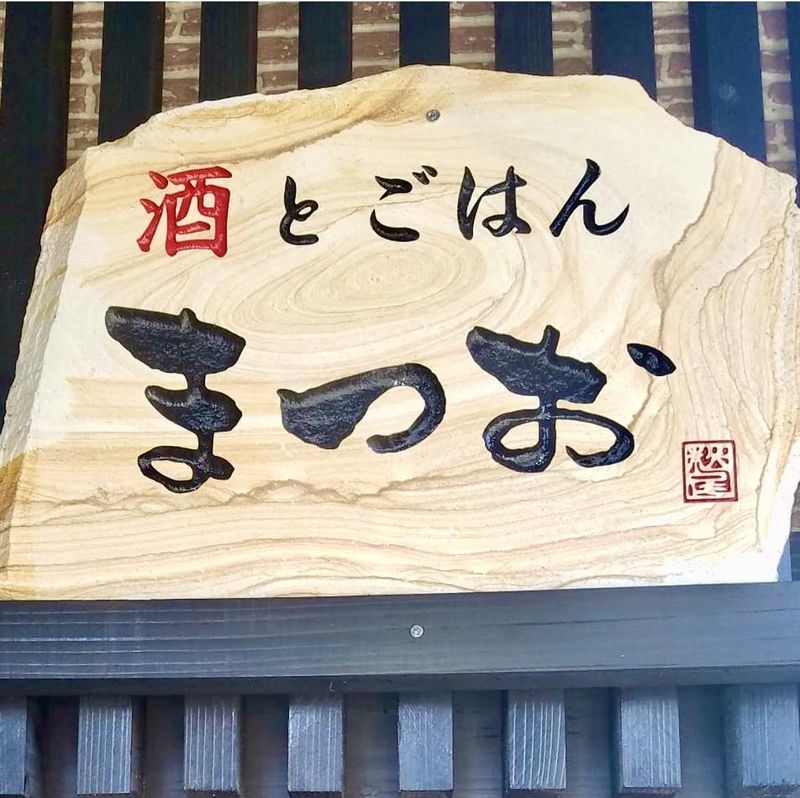 酒とごはん
まつお